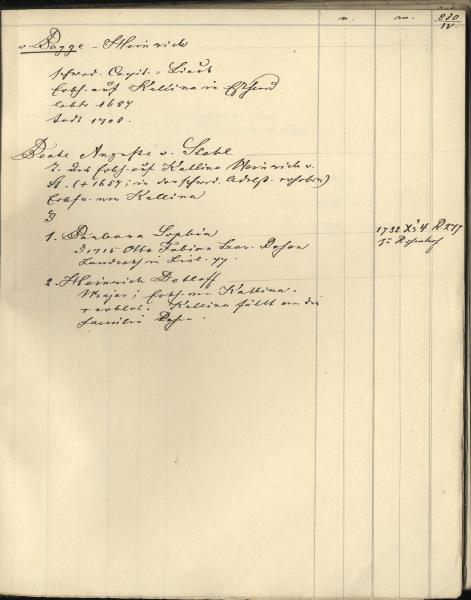 n. m. 220
IV.
v. Bagge - Heinrich
schwed. Capit. Lieut
Erbh. auf Kallina in Esthland
lebte 1687
todt 1708.
Beate Auguste v. Stahl
T. des Erbh. auf Kallina Heinrich v.
St. († 1657; in den schwed. Adelst. erhoben)
Erbfr. von Kallina
3
1. Barbara Sophia
1715 Otto Fabian Bar. Rosen
Landrath in Livl.
1732 4
2. Heinrich Detloff
Major; Erbh. von Kallina.
Kallina fällt an die
Familie Rosen.